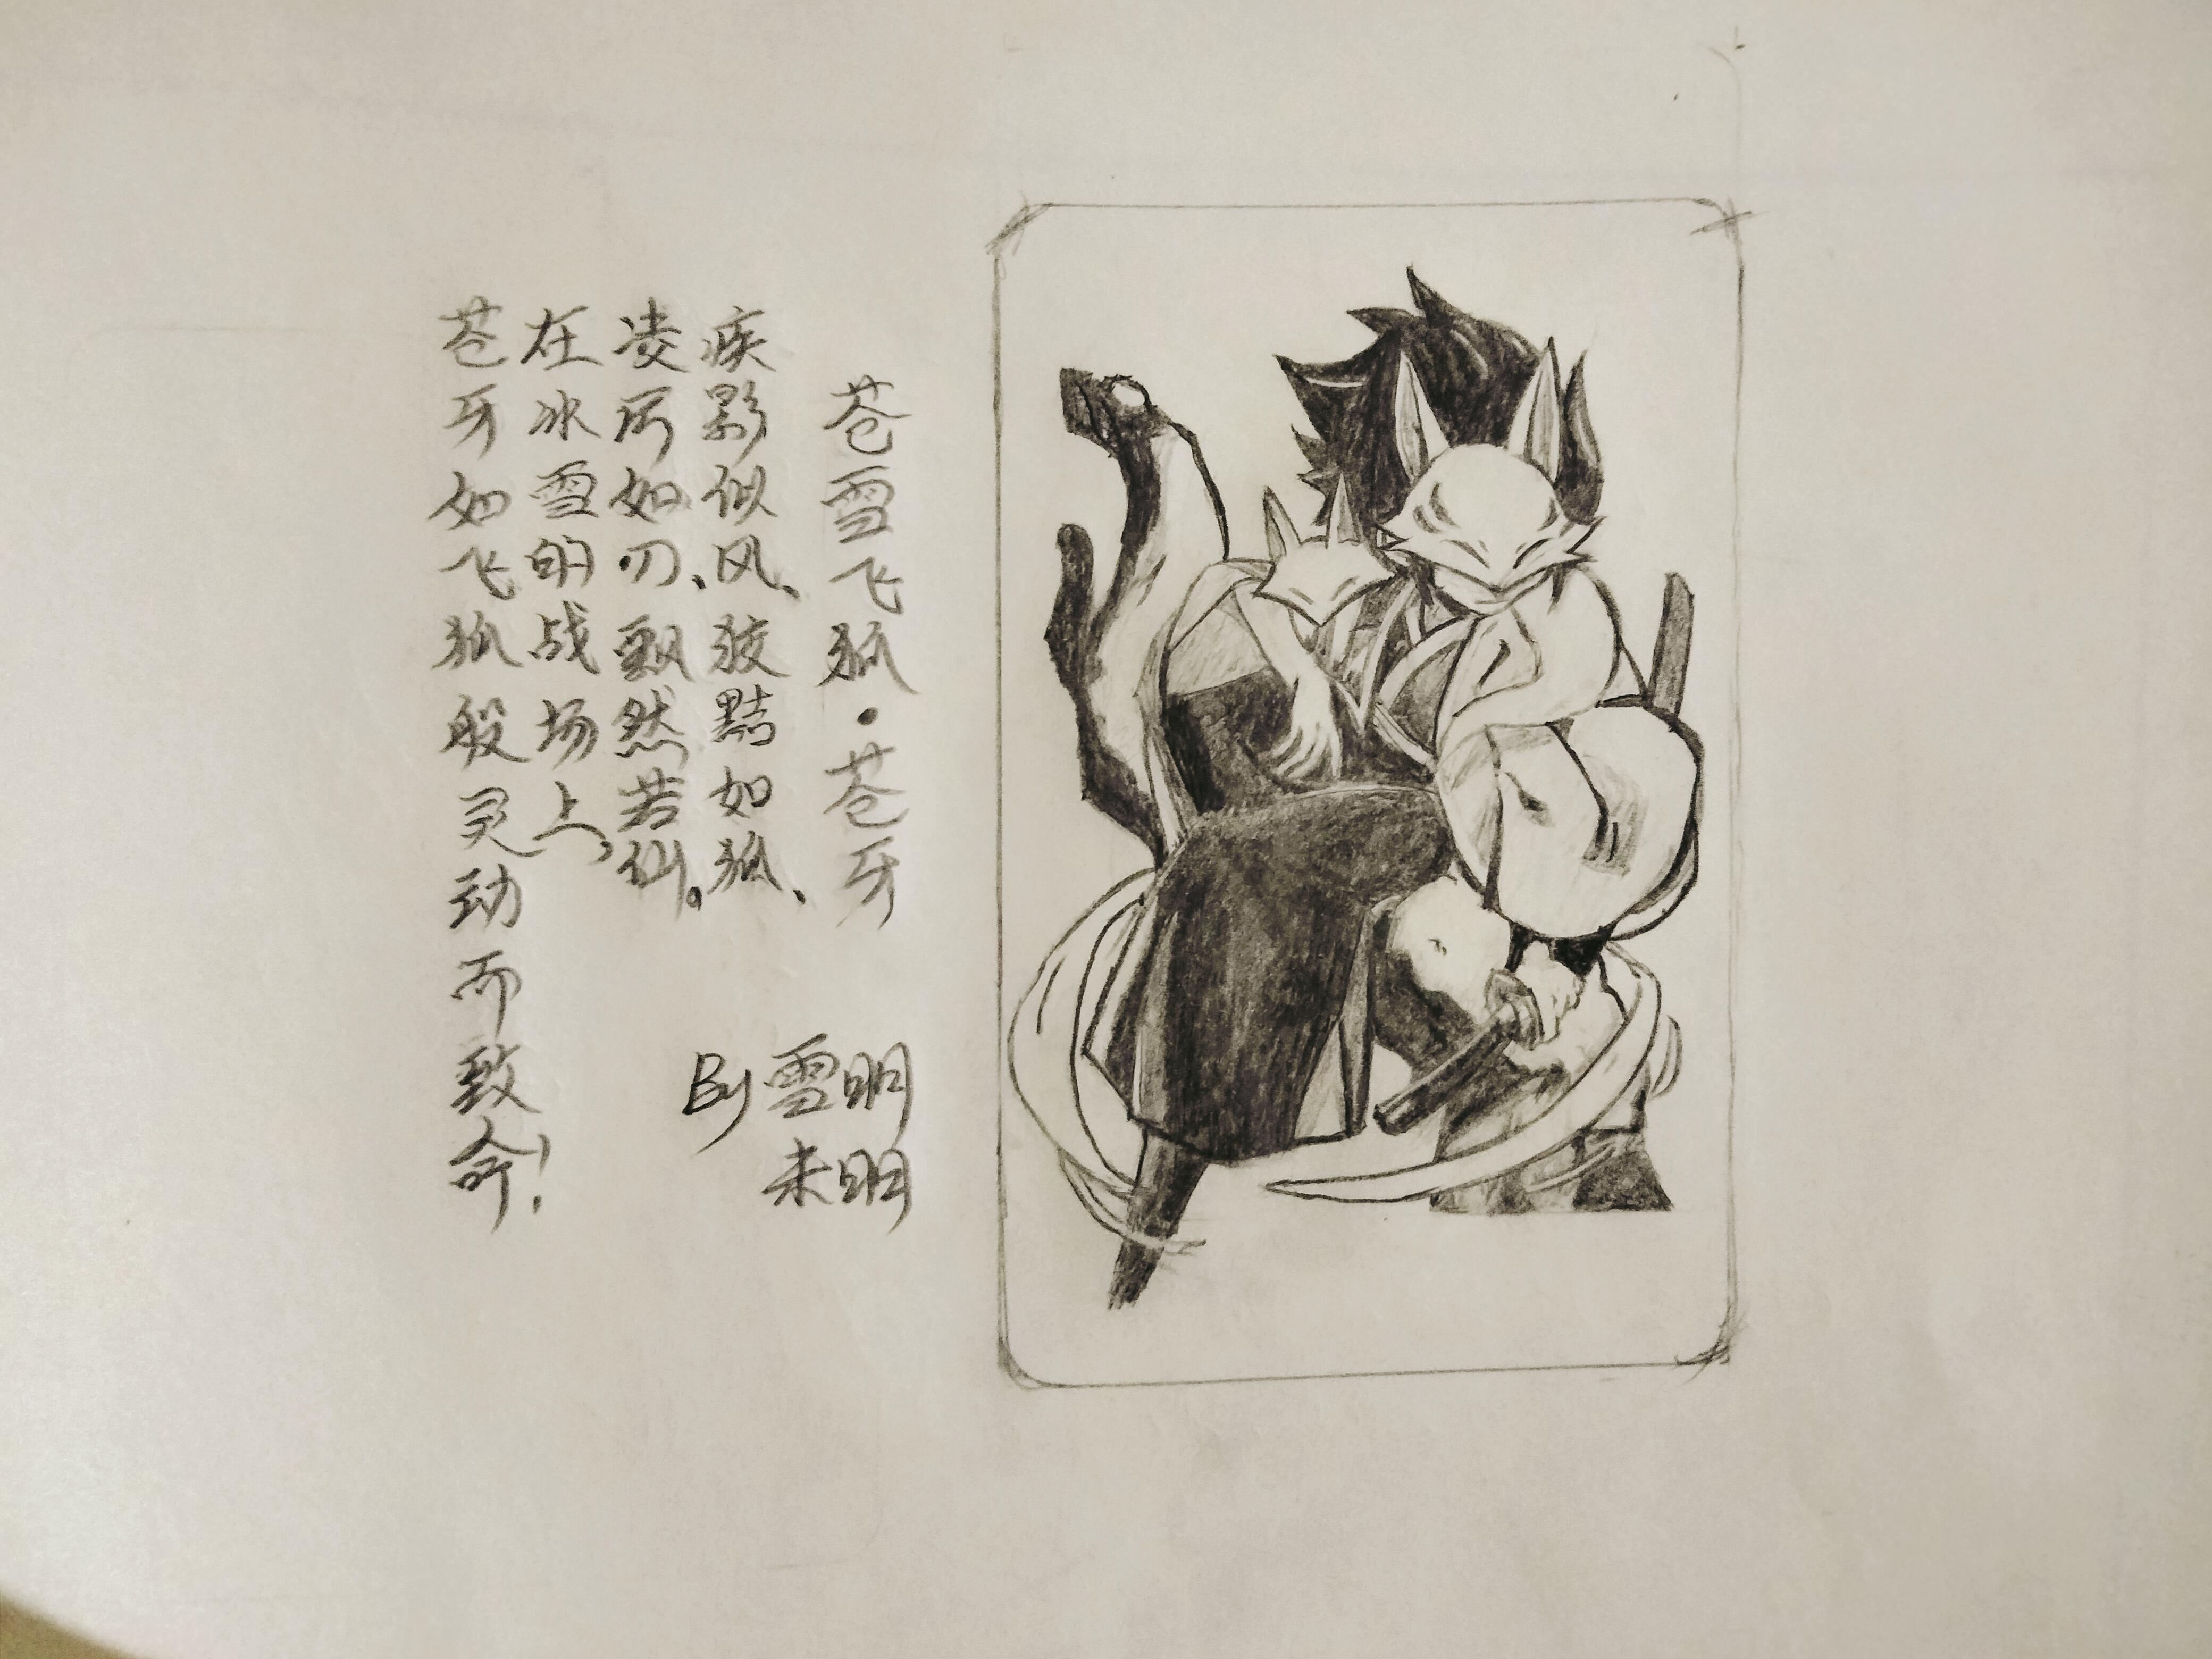 苍雪飞狐·苍牙
疾影似风、狡黠如狐、
凌厉如刃、飘然若仙。
在冰雪的战场上,
苍牙如飞狐般灵动而致命!
By雪明
未明